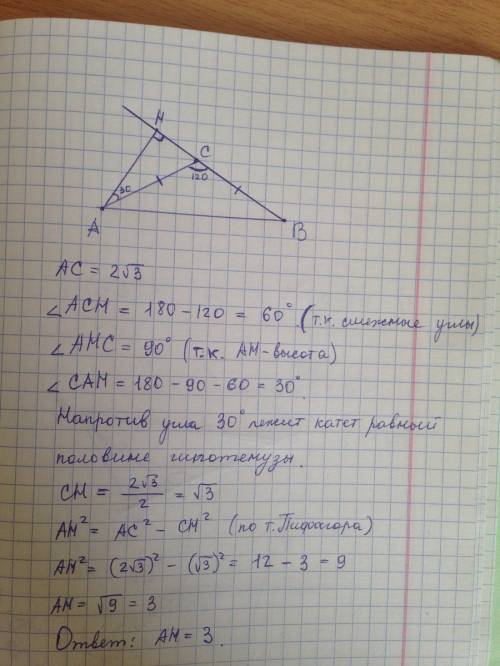 H
C
120
30
A
B
AC = 2√3
∠ACH = 180 - 120 = 60°. (т.к. смежные углы)
∠AHC = 90° (т.к. AH-высота)
∠CAH = 180 - 90 - 60 = 30°.
Напротив угла 30° лежит катет равный
половине гипотенузы.
CH = 2√3/2 = √3
AH² = AC² - CH² (по т. Пифагора)
AH² = (2√3)² - (√3)² = 12 - 3 = 9
AH = √9 = 3
Ответ: AH = 3.